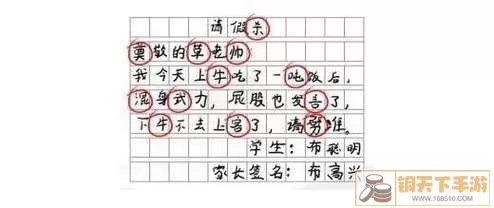 请假杀
莫敬的草老帅
我今天上牛吃了一吨饭后，
混身武力，屁股也发言了，
下牛不去上客了，请努准。
学生：布聪明
家长签名：布高兴
钥天下手游
www.168510.com